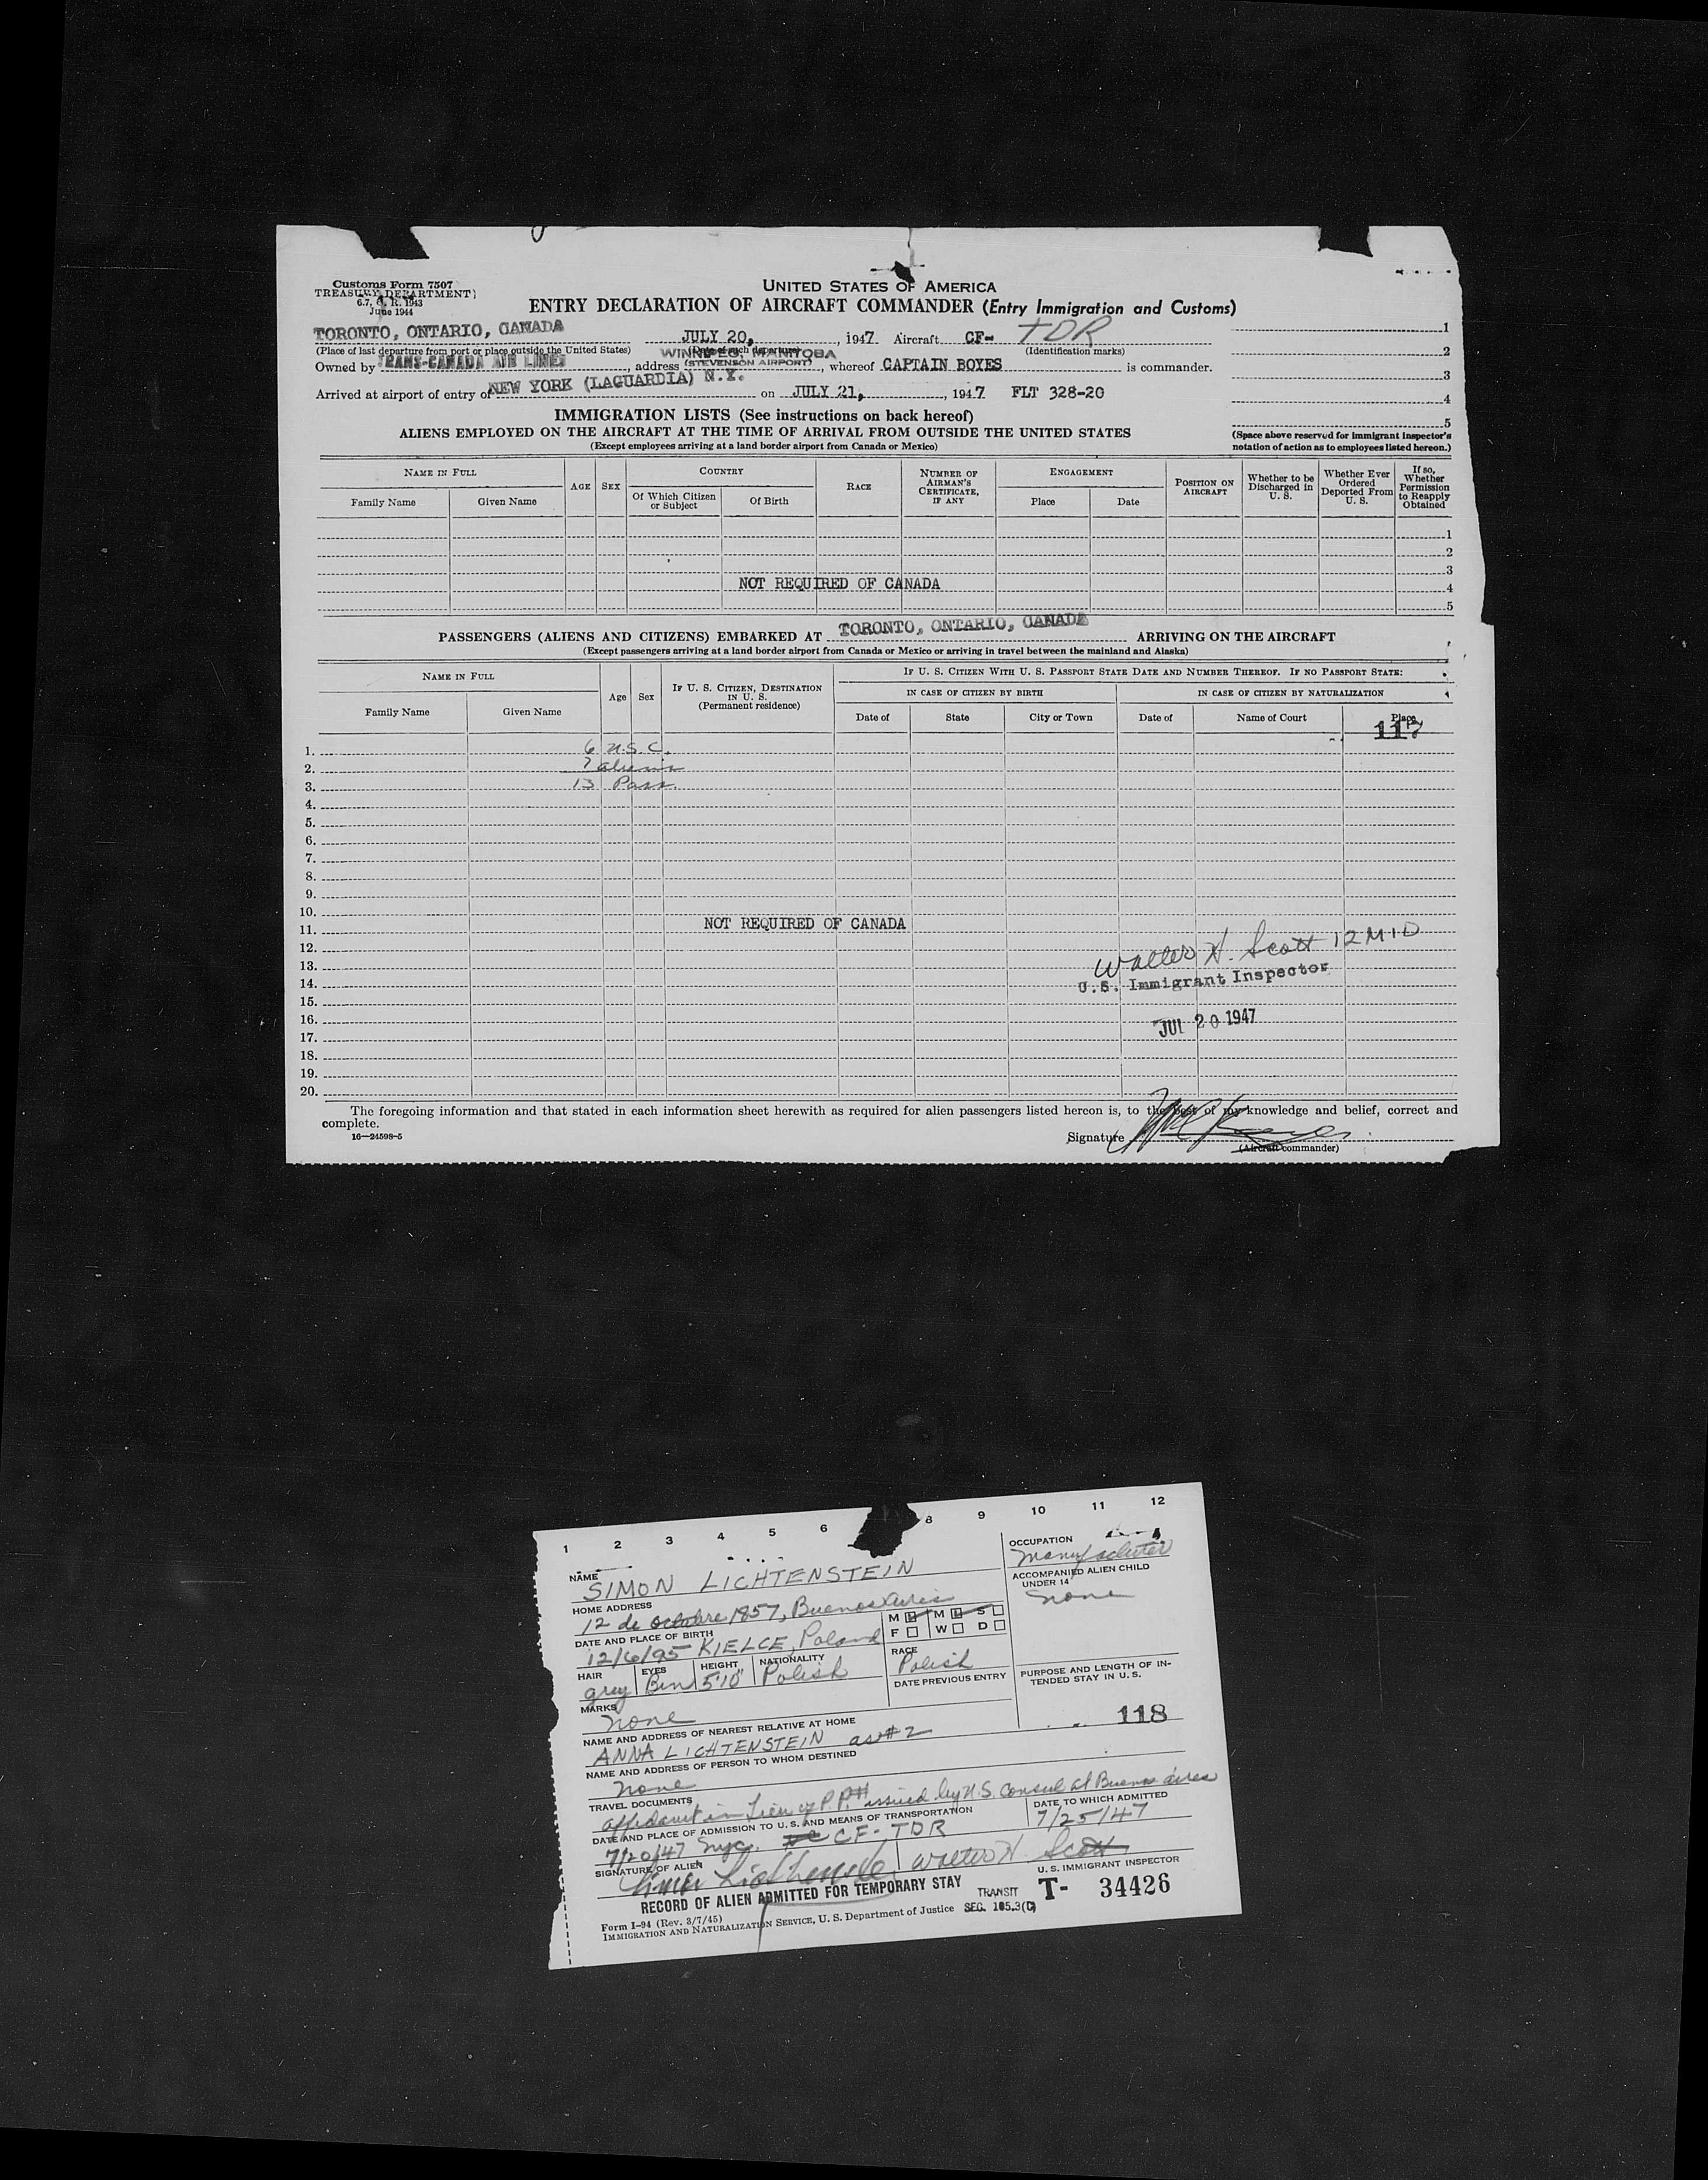 Customs Form 7507
TREASURY DEPARTMENT
6.7, C. R. 1943
June 1944
UNITED STATES OF AMERICA
ENTRY DECLARATION OF AIRCRAFT COMMANDER (Entry Immigration and Customs)
TORONTO, ONTARIO, CANADA JULY 20, , 1947 Aircraft CF- TDR 1
(Place of last departure from port or place outside the United States) (Date of such departure) (Identification marks) 2
WINNIPEG, MANITOBA
Owned by TRANS-CANADA AIR LINES , address (STEVENSON AIRPORT) , whereof CAPTAIN BOYES is commander. 3
Arrived at airport of entry of NEW YORK (LAGUARDIA) N.Y. on JULY 21, , 1947 FLT 328-20 4
5
IMMIGRATION LISTS (See instructions on back hereof)
ALIENS EMPLOYED ON THE AIRCRAFT AT THE TIME OF ARRIVAL FROM OUTSIDE THE UNITED STATES
(Except employees arriving at a land border airport from Canada or Mexico)
(Space above reserved for immigrant inspector's
notation of action as to employees listed hereon.)
NAME IN FULL AGE SEX COUNTRY RACE NUMBER OF AIRMAN'S CERTIFICATE, IF ANY ENGAGEMENT POSITION ON AIRCRAFT Whether to be Discharged in U. S. Whether Ever Ordered Deported From U. S. If so, Whether Permission to Reapply Obtained
Family Name Given Name Of Which Citizen or Subject Of Birth Place Date
1
2
3
NOT REQUIRED OF CANADA 4
5
PASSENGERS (ALIENS AND CITIZENS) EMBARKED AT TORONTO, ONTARIO, CANADA ARRIVING ON THE AIRCRAFT
(Except passengers arriving at a land border airport from Canada or Mexico or arriving in travel between the mainland and Alaska)
NAME IN FULL Age Sex IF U. S. CITIZEN, DESTINATION IN U. S. (Permanent residence) IF U. S. CITIZEN WITH U. S. PASSPORT STATE DATE AND NUMBER THEREOF. IF NO PASSPORT STATE:
IN CASE OF CITIZEN BY BIRTH IN CASE OF CITIZEN BY NATURALIZATION
Family Name Given Name Date of State City or Town Date of Name of Court Place
117
1. 6 U.S.C.
2. 7 aliens
3. 13 Pass.
4.
5.
6.
7.
8.
9.
10.
11. NOT REQUIRED OF CANADA
12. Walter H. Scott 12 M I D
13.
14. U.S. Immigrant Inspector
15.
16. JUL 20 1947
17.
18.
19.
20.
The foregoing information and that stated in each information sheet herewith as required for alien passengers listed hereon is, to the best of my knowledge and belief, correct and
complete.
16—24598-5
Signature
(Aircraft commander)
1 2 3 4 5 6 8 9 10 11 12
NAME
SIMON LICHTENSTEIN
OCCUPATION
Manufacturer
HOME ADDRESS
12 de Octubre 1857, Buenos Aires
ACCOMPANIED ALIEN CHILD
UNDER 14
None
DATE AND PLACE OF BIRTH
12/6/95 KIELCE, Poland
M M S
F W D
HAIR EYES HEIGHT NATIONALITY
grey Brn 5'10" Polish
RACE
Polish
MARKS
None
DATE PREVIOUS ENTRY
PURPOSE AND LENGTH OF IN-
TENDED STAY IN U. S.
118
NAME AND ADDRESS OF NEAREST RELATIVE AT HOME
ANNA LICHTENSTEIN as #2
NAME AND ADDRESS OF PERSON TO WHOM DESTINED
None
TRAVEL DOCUMENTS
affidavit in lieu of P.P. issued by U.S. Consul at Buenos Aires
DATE AND PLACE OF ADMISSION TO U. S. AND MEANS OF TRANSPORTATION
7/20/47 NYC. CF-TDR
DATE TO WHICH ADMITTED
7/25/47
SIGNATURE OF ALIEN
Walter H. Scott
U. S. IMMIGRANT INSPECTOR
RECORD OF ALIEN ADMITTED FOR TEMPORARY STAY TRANSIT T- 34426
SEC. 105.3(C)
Form I-94 (Rev. 3/7/45)
IMMIGRATION AND NATURALIZATION SERVICE, U. S. Department of Justice